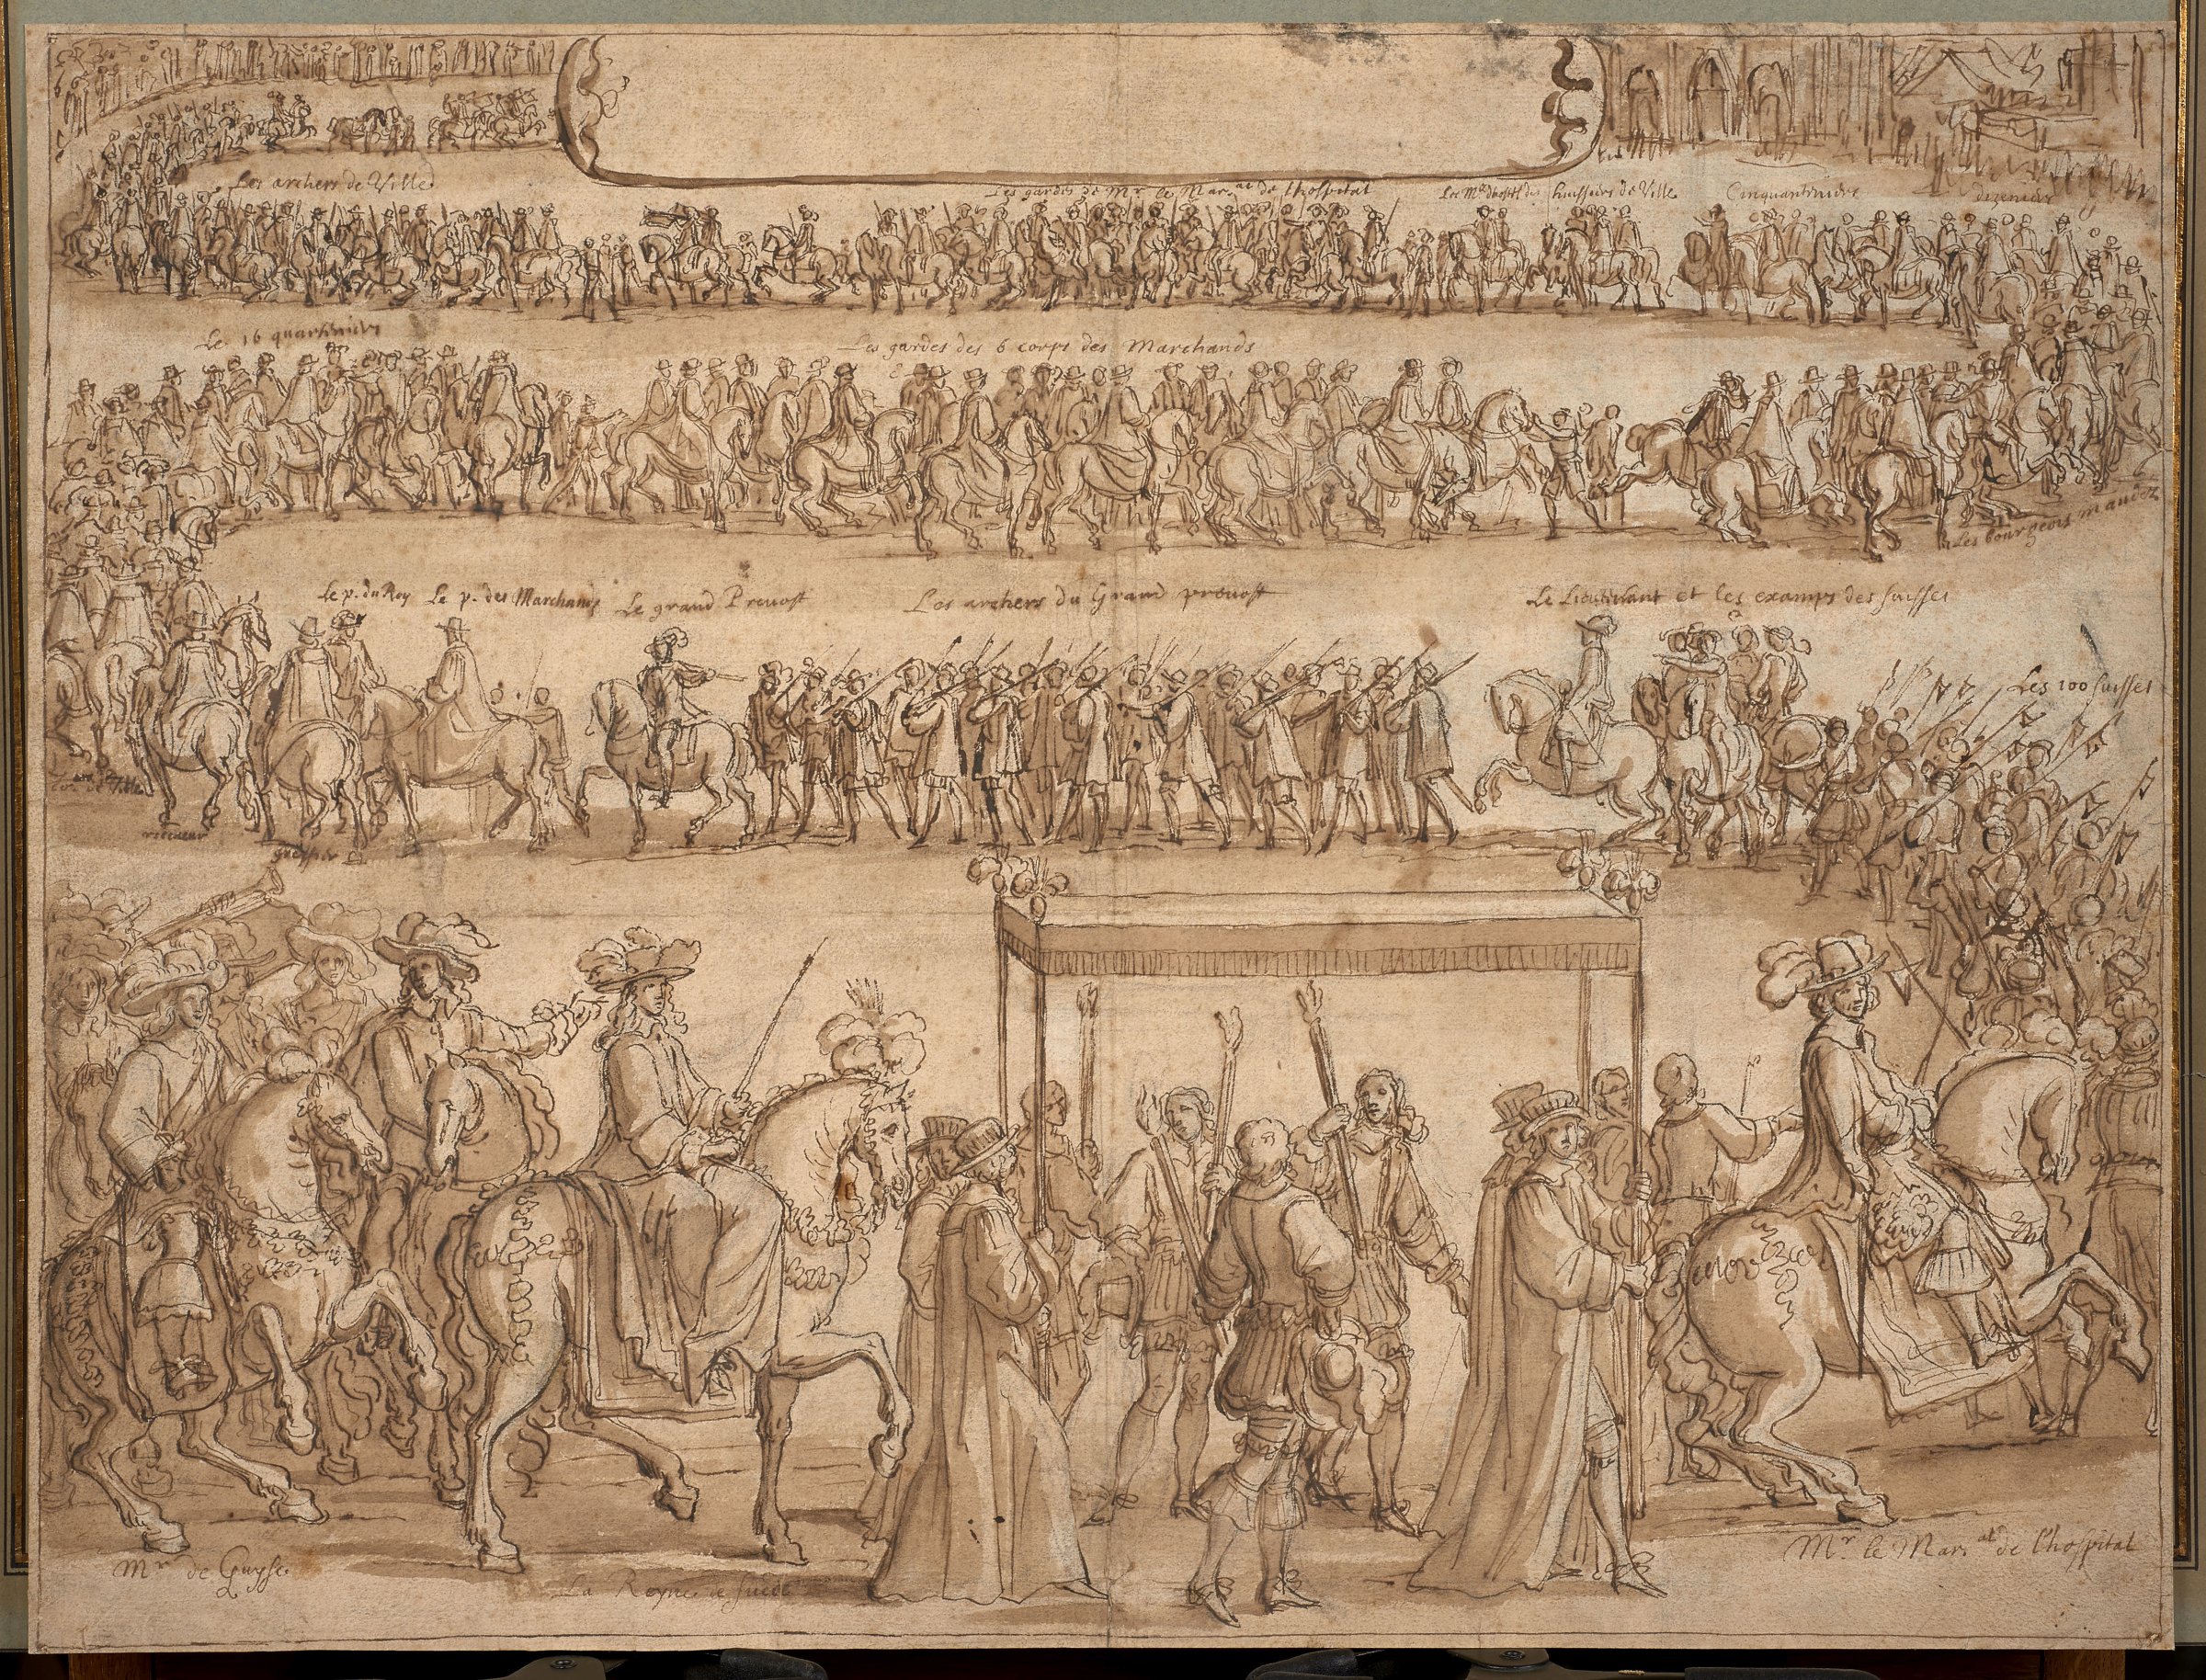 Les archers de Ville
Les gardes de Mr. le Mar.al de lhospital
Les Md'hostl des huissiers de Ville
Cinquanteniers
dizeniers
Le 16 quarteniers
Les gardes des 6 corps des Marchands
Les bourgeois mandez
le p. du Roy
Le p. des Marchands
Le grand Prevost
Les archers du Grand prevost
Le Lieutenant et les examps des suisses
Les 100 suisses
de Ville
receveur
greffier
Mr de Guyse
La Royne de suede
Mr le Mar.al de l'hospital